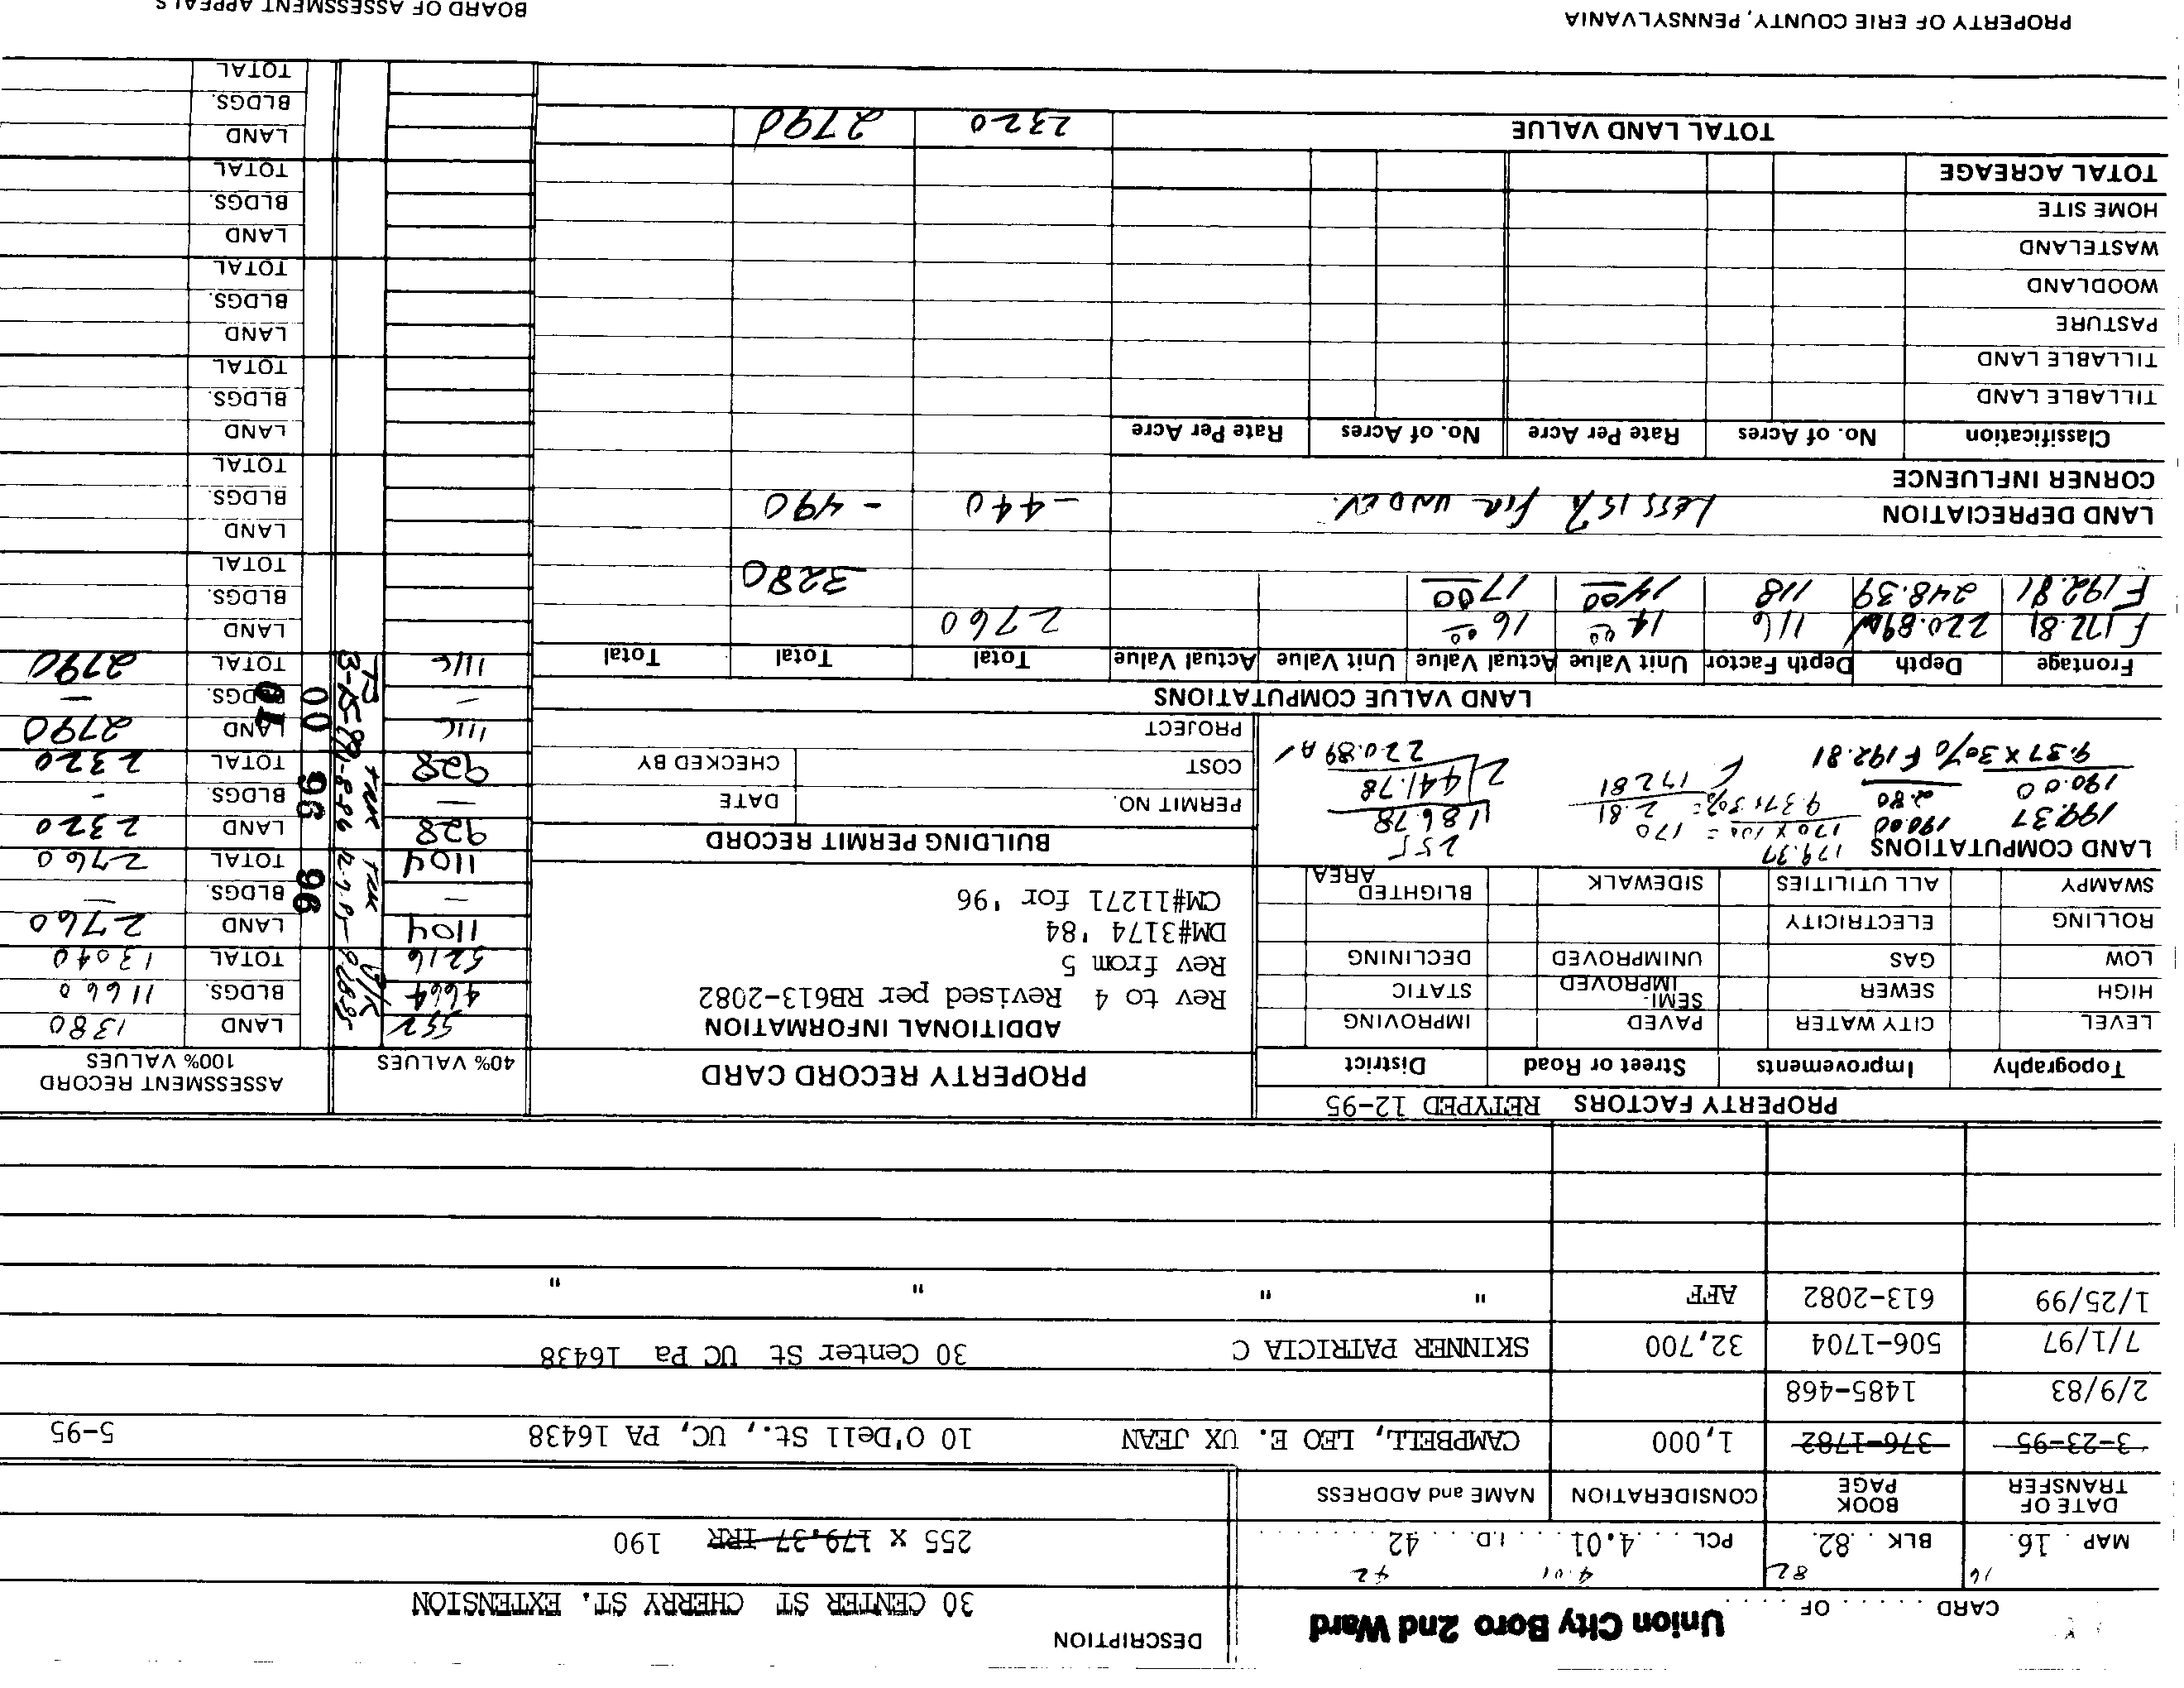 Union City Boro 2nd Ward
DESCRIPTION
CARD . . . . . OF . . . .
30 CENTER ST CHERRY ST. EXTENSION
16 82 4.01 42
MAP . 16. BLK . .82. PCL . . .4.01. . . I.D. . . . 42 . . . . . . . . .
255 x 179.37 IRR 190
DATE OF TRANSFER BOOK PAGE CONSIDERATION NAME and ADDRESS
3-23-95 376-1782 1,000 CAMPBELL, LEO E. UX JEAN 10 O'Dell St., UC, PA 16438 5-95
2/9/83 1485-468
7/1/97 506-1704 32,700 SKINNER PATRICIA C 30 Center St UC Pa 16438
1/25/99 613-2082 AFF " " " "
PROPERTY FACTORS RETYPED 12-95
Topography Improvements Street or Road District
LEVEL CITY WATER PAVED IMPROVING
HIGH SEWER SEMI-IMPROVED STATIC
LOW GAS UNIMPROVED DECLINING
ROLLING ELECTRICITY
SWAMPY ALL UTILITIES SIDEWALK BLIGHTED AREA
PROPERTY RECORD CARD
ADDITIONAL INFORMATION
Rev to 4 Revised per RB613-2082
Rev from 5
DM#3174 '84
CM#11271 for '96
BUILDING PERMIT RECORD
PERMIT NO. DATE
COST CHECKED BY
PROJECT
40% VALUES
552
4664
5216
1104
—
1104
928
—
928
1116
—
1116
ASSESSMENT RECORD
100% VALUES
LAND 1380
BLDGS. 11660
TOTAL 13040
96
LAND 2760
BLDGS. —
TOTAL 2760
98
LAND 2320
BLDGS. -
TOTAL 2320
00
01
LAND 2790
BLDGS. —
TOTAL 2790
LAND
BLDGS.
TOTAL
LAND
BLDGS.
TOTAL
LAND
BLDGS.
TOTAL
LAND
BLDGS.
TOTAL
LAND
BLDGS.
TOTAL
LAND
BLDGS.
TOTAL
LAND COMPUTATIONS 179.37
199.37 190.00 170 x 100 = 170 255
190.00 2.80 9.37 x 30% = 2.81 186.78
9.37 x 30% F 192.81 F 172 81 2 441.78
220.89 A
LAND VALUE COMPUTATIONS
Frontage Depth Depth Factor Unit Value Actual Value Unit Value Actual Value Total Total Total
F 172.81 220.89A 116 14 00 16 00 2760
F 192.81 248.39 118 14 00 17 00 3280
LAND DEPRECIATION Less 15% for UNDEV. -440 -490
CORNER INFLUENCE
Classification No. of Acres Rate Per Acre No. of Acres Rate Per Acre
TILLABLE LAND
TILLABLE LAND
PASTURE
WOODLAND
WASTELAND
HOME SITE
TOTAL ACREAGE
TOTAL LAND VALUE 2320 2790
PROPERTY OF ERIE COUNTY, PENNSYLVANIA
BOARD OF ASSESSMENT APPEALS